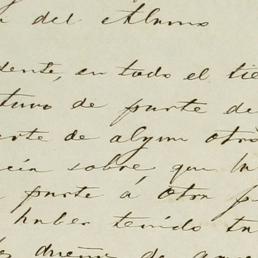 del Alamo
dente, en todo el tie
tuvo de parte de
erte de algun otro
cia sobre, que
parte á otra p
haber tenido
dueño de